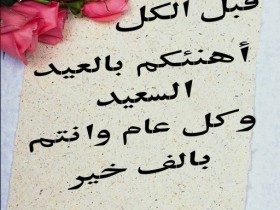 قبل الكل
أهنئكم بالعيد
السعيد
وكل عام وانتم
بالف خير